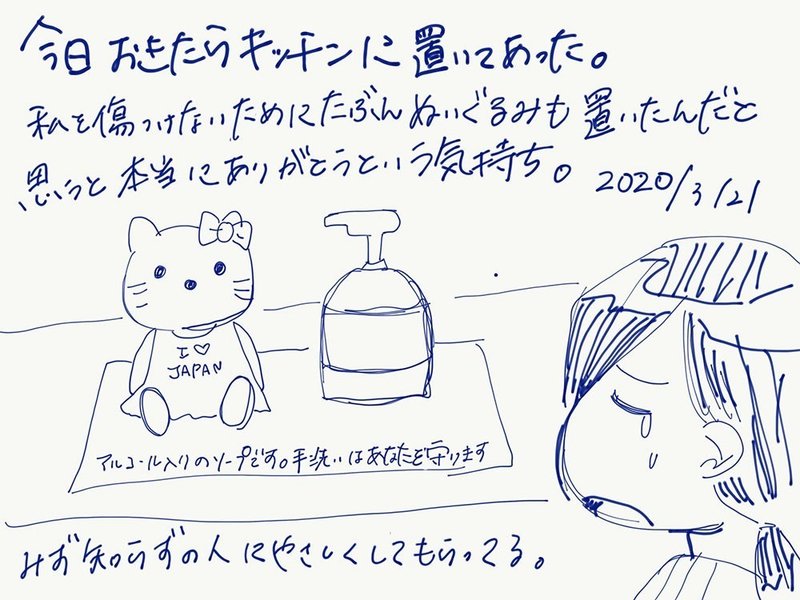 今日おきたらキッチンに置いてあった。
私を傷つけないためにたぶんぬいぐるみも置いたんだと
思うと本当にありがとうという気持ち。
2020/3/21
I ♡
JAPAN
アルコール入りのソープです。手洗いはあなたを守ります
みず知らずの人にやさしくしてもらってる。